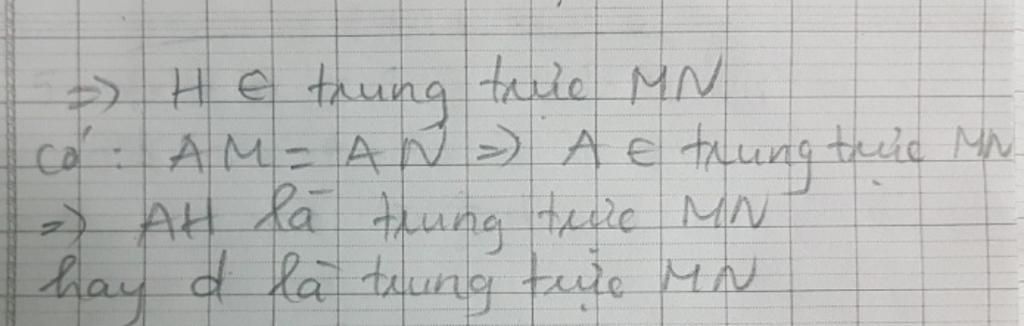 => H ∈ trung trực MN
có: AM = AN => A ∈ trung trực MN
=> AH là trung trực MN
hay d là trung trực MN